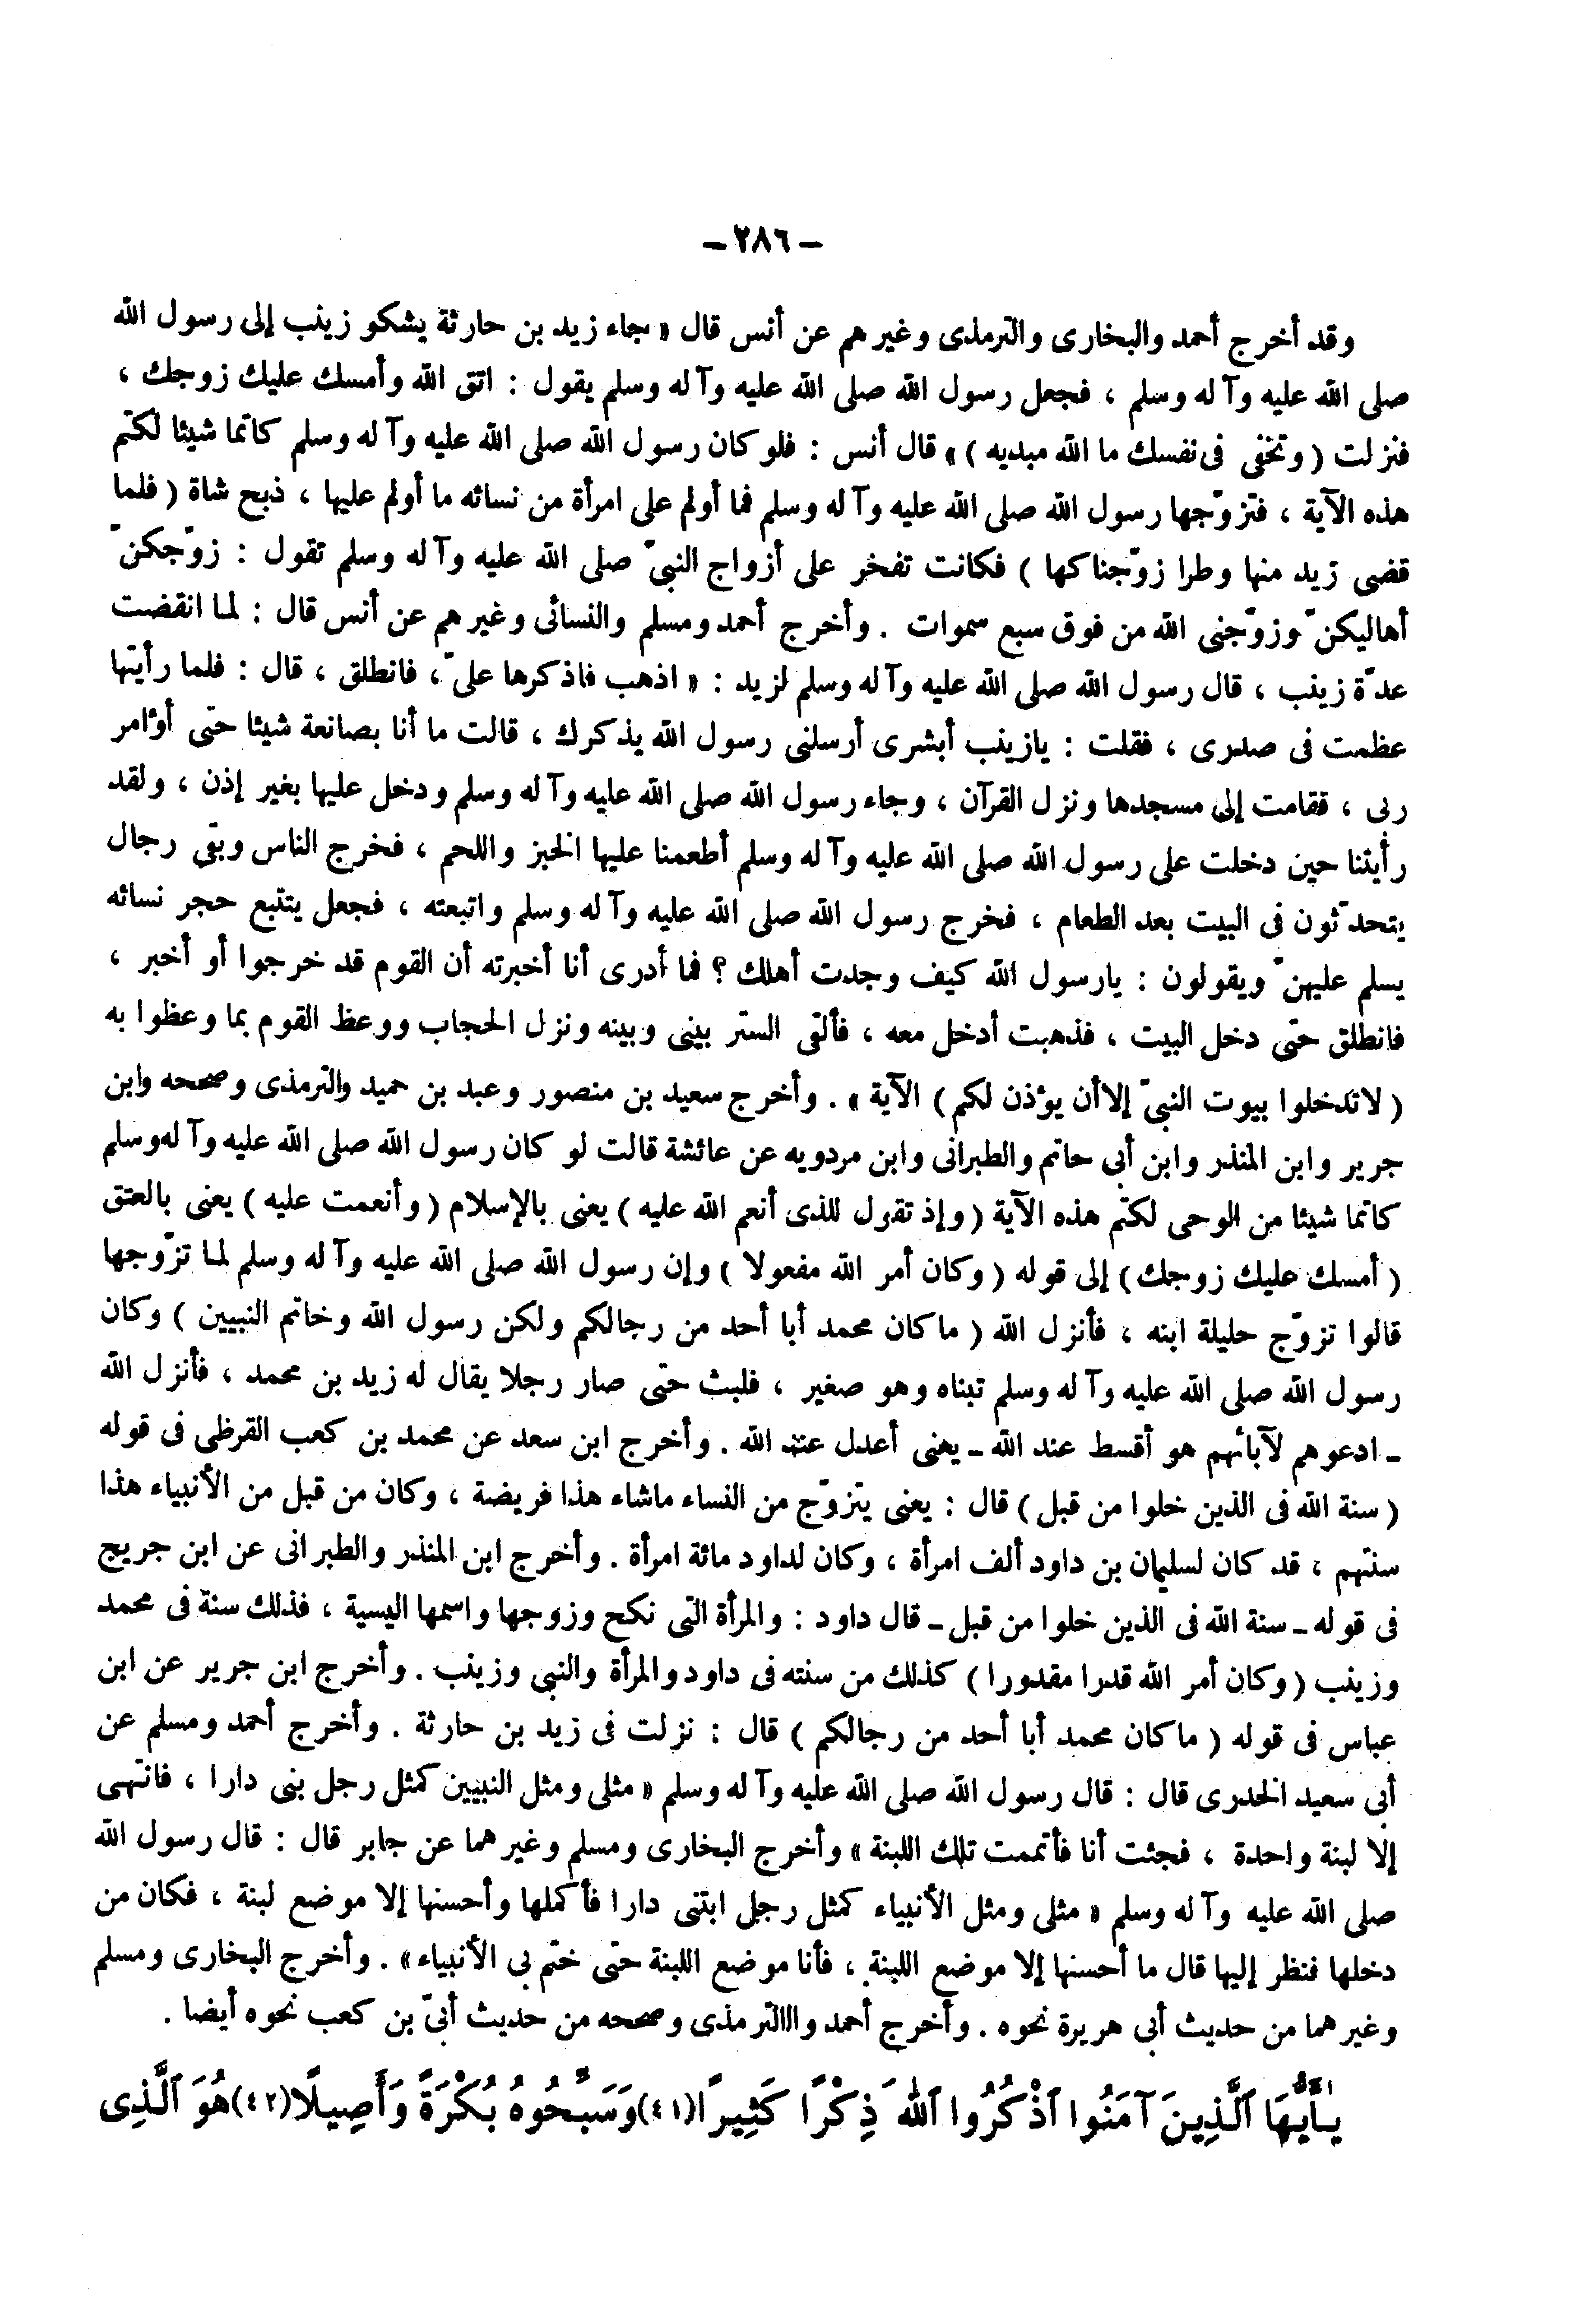 – ٢٨٦ –
وقد أخرج أحمد والبخارى والترمذى وغيرهم عن أنس قال « جاء زيد بن حارثة يشكو زينب إلى رسول الله
صلى الله عليه وآله وسلم ، فجعل رسول الله صلى الله عليه وآله وسلم يقول : اتق الله وأمسك عليك زوجك ،
فنزلت ( وتخفى فى نفسك ما الله مبديه ) » قال أنس : فلو كان رسول الله صلى الله عليه وآله وسلم كاتما شيئا لكتم
هذه الآية ، فتزوّجها رسول الله صلى الله عليه وآله وسلم فما أولم على امرأة من نسائه ما أولم عليها ، ذبح شاة ( فلما
قضى زيد منها وطرا زوّجناكها ) فكانت تفخر على أزواج النبىّ صلى الله عليه وآله وسلم تقول : زوّجكنّ
أهاليكنّ وزوّجنى الله من فوق سبع سموات . وأخرج أحمد ومسلم والنسائى وغيرهم عن أنس قال : لما انقضت
عدّة زينب ، قال رسول الله صلى الله عليه وآله وسلم لزيد : « اذهب فاذكرها علىّ ، فانطلق ، قال : فلما رأيتها
عظمت فى صدرى ، فقلت : يازينب أبشرى أرسلنى رسول الله يذكرك ، قالت ما أنا بصانعة شيئا حتى أوٴامر
ربى ، فقامت إلى مسجدها ونزل القرآن ، وجاء رسول الله صلى الله عليه وآله وسلم ودخل عليها بغير إذن ، ولقد
رأيتنا حين دخلت على رسول الله صلى الله عليه وآله وسلم أطعمنا عليها الخبز واللحم ، فخرج الناس وبقى رجال
يتحدّثون فى البيت بعد الطعام ، فخرج رسول الله صلى الله عليه وآله وسلم واتبعته ، فجعل يتتبع حجر نسائه
يسلم عليهنّ ويقولون : يارسول الله كيف وجدت أهلك ؟ فما أدرى أنا أخبرته أن القوم قد خرجوا أو أخبر ،
فانطلق حتى دخل البيت ، فذهبت أدخل معه ، فألقى الستر بينى وبينه ونزل الحجاب ووعظ القوم بما وعظوا به
( لاتدخلوا بيوت النبىّ إلا أن يوٴذن لكم ) الآية » . وأخرج سعيد بن منصور وعبد بن حميد والترمذى وصححه وابن
جرير وابن المنذر وابن أبى حاتم والطبرانى وابن مردويه عن عائشة قالت لو كان رسول الله صلى الله عليه وآله وسلم
كاتما شيئا من الوحى لكتم هذه الآية ( وإذ تقول للذى أنعم الله عليه ) يعنى بالإسلام ( وأنعمت عليه ) يعنى بالعتق
( أمسك عليك زوجك ) إلى قوله ( وكان أمر الله مفعولا ) وإن رسول الله صلى الله عليه وآله وسلم لما تزوّجها
قالوا تزوّج حليلة ابنه ، فأنزل الله ( ما كان محمد أبا أحد من رجالكم ولكن رسول الله وخاتم النبيين ) وكان
رسول الله صلى الله عليه وآله وسلم تبناه وهو صغير ، فلبث حتى صار رجلا يقال له زيد بن محمد ، فأنزل الله
ـ ادعوهم لآبائهم هو أقسط عند الله ـ يعنى أعدل عند الله . وأخرج ابن سعد عن محمد بن كعب القرظى فى قوله
( سنة الله فى الذين خلوا من قبل ) قال : يعنى يتزوّج من النساء ماشاء هذا فريضة ، وكان من قبل من الأنبياء هذا
سنتهم ، قد كان لسليمان بن داود ألف امرأة ، وكان لداود مائة امرأة . وأخرج ابن المنذر والطبرانى عن ابن جريج
فى قوله ـ سنة الله فى الذين خلوا من قبل ـ قال داود : والمرأة التى نكح وزوجها واسمها اليسية ، فذلك سنة فى محمد
وزينب ( وكان أمر الله قدرا مقدورا ) كذلك من سنته فى داود والمرأة والنبى وزينب . وأخرج ابن جرير عن ابن
عباس فى قوله ( ما كان محمد أبا أحد من رجالكم ) قال : نزلت فى زيد بن حارثة . وأخرج أحمد ومسلم عن
أبى سعيد الخدرى قال : قال رسول الله صلى الله عليه وآله وسلم « مثلى ومثل النبيين كمثل رجل بنى دارا ، فانتهى
إلا لبنة واحدة ، فجئت أنا فأتممت تلك اللبنة » وأخرج البخارى ومسلم وغيرهما عن جابر قال : قال رسول الله
صلى الله عليه وآله وسلم « مثلى ومثل الأنبياء كمثل رجل ابتنى دارا فأكملها وأحسنها إلا موضع لبنة ، فكان من
دخلها فنظر إليها قال ما أحسنها إلا موضع اللبنة ، فأنا موضع اللبنة حتى ختم بى الأنبياء » . وأخرج البخارى ومسلم
وغيرهما من حديث أبى هريرة نحوه . وأخرج أحمد واالترمذى وصححه من حديث أبىّ بن كعب نحوه أيضا .
يَـٰأَيُّهَا ٱلَّذِينَ آمَنُوا ٱذْكُرُوا ٱللهَ ذِكْرًا كَثِيرًا (٤١) وَسَبِّحُوهُ بُكْرَةً وَأَصِيلًا (٤٢) هُوَ ٱلَّذِى